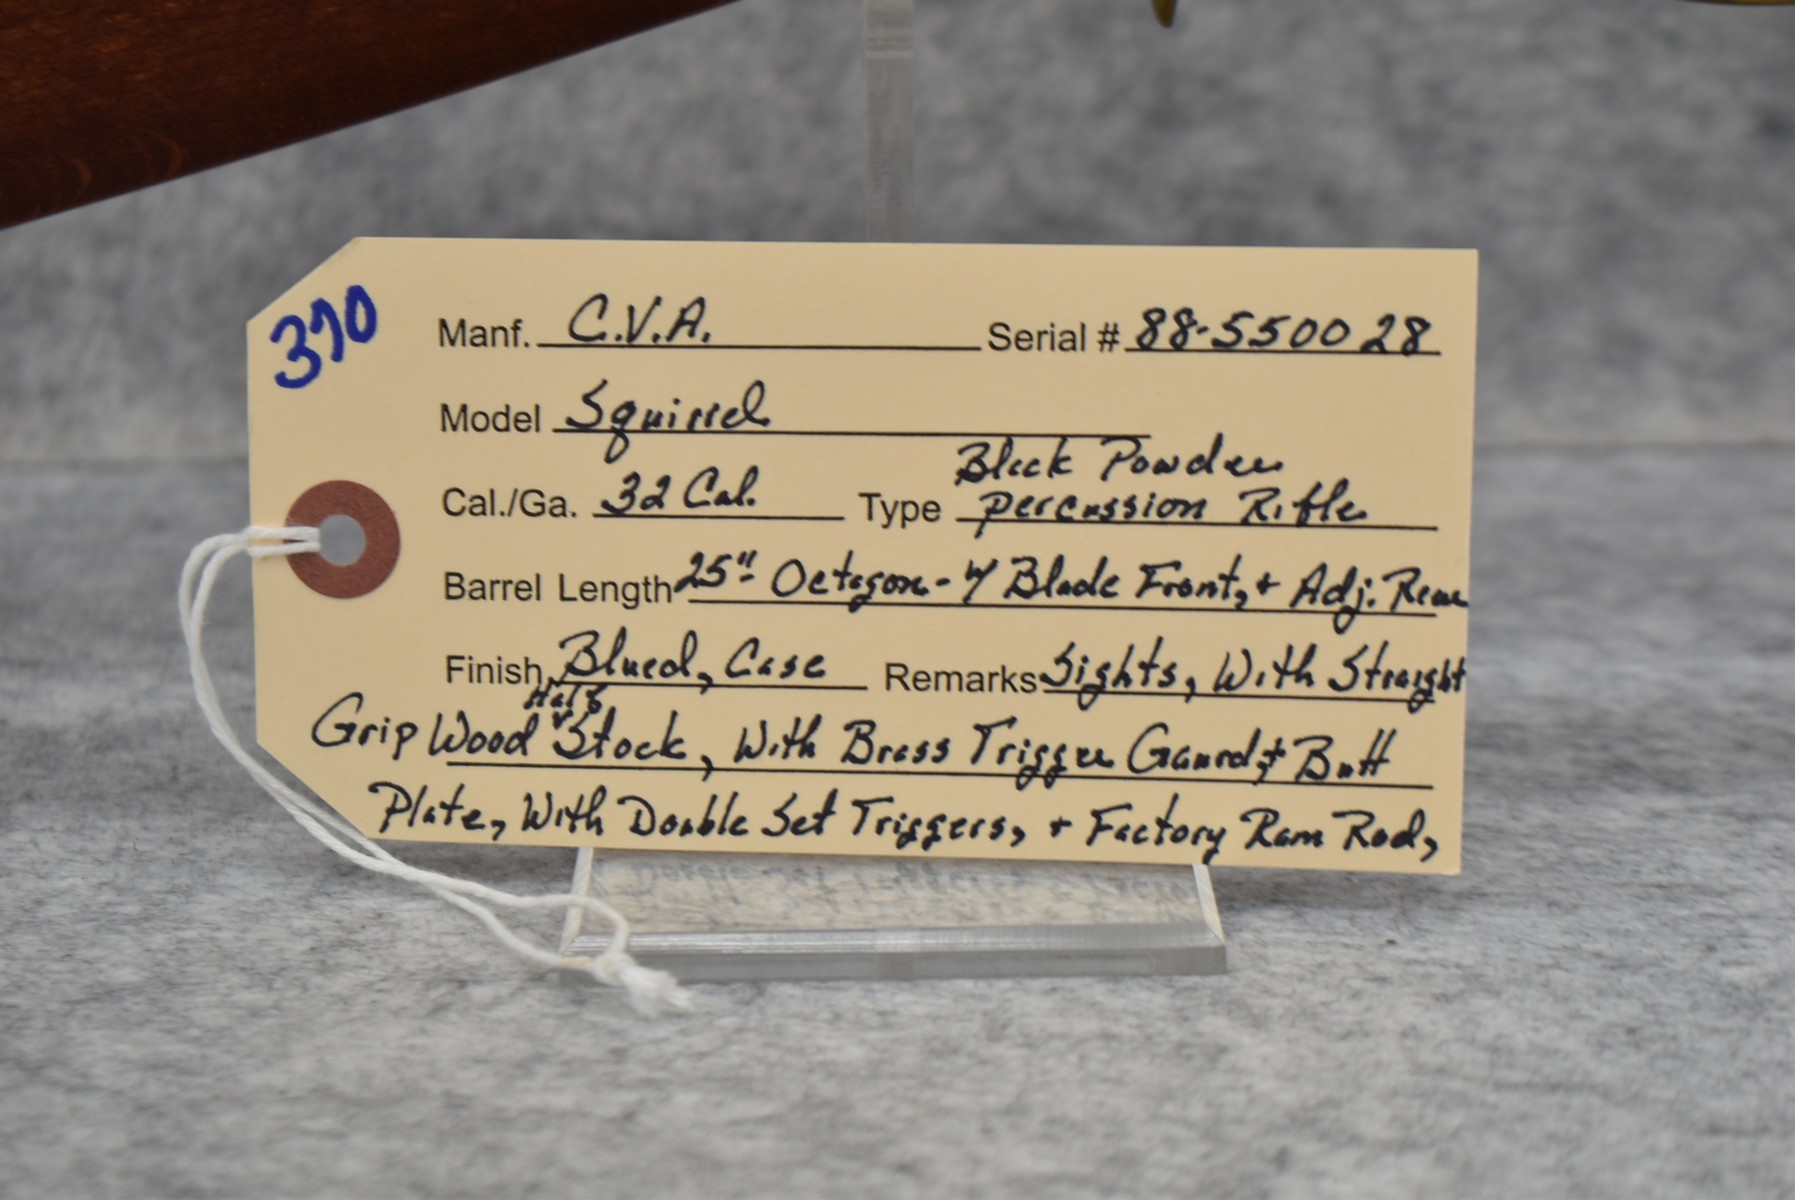 370
Manf. C.V.A. Serial # 88-5500 28
Model Squirrel
Black Powder
Cal./Ga. 32 Cal. Type Percussion Rifle
Barrel Length 25" Octagon - W/ Blade Front, + Adj. Rear
Finish Blued, Case Remarks Sights, With Straight
Half
Grip Wood Stock, With Brass Trigger Gaurd, + Butt
Plate, With Double Set Triggers, + Factory Ram Rod,